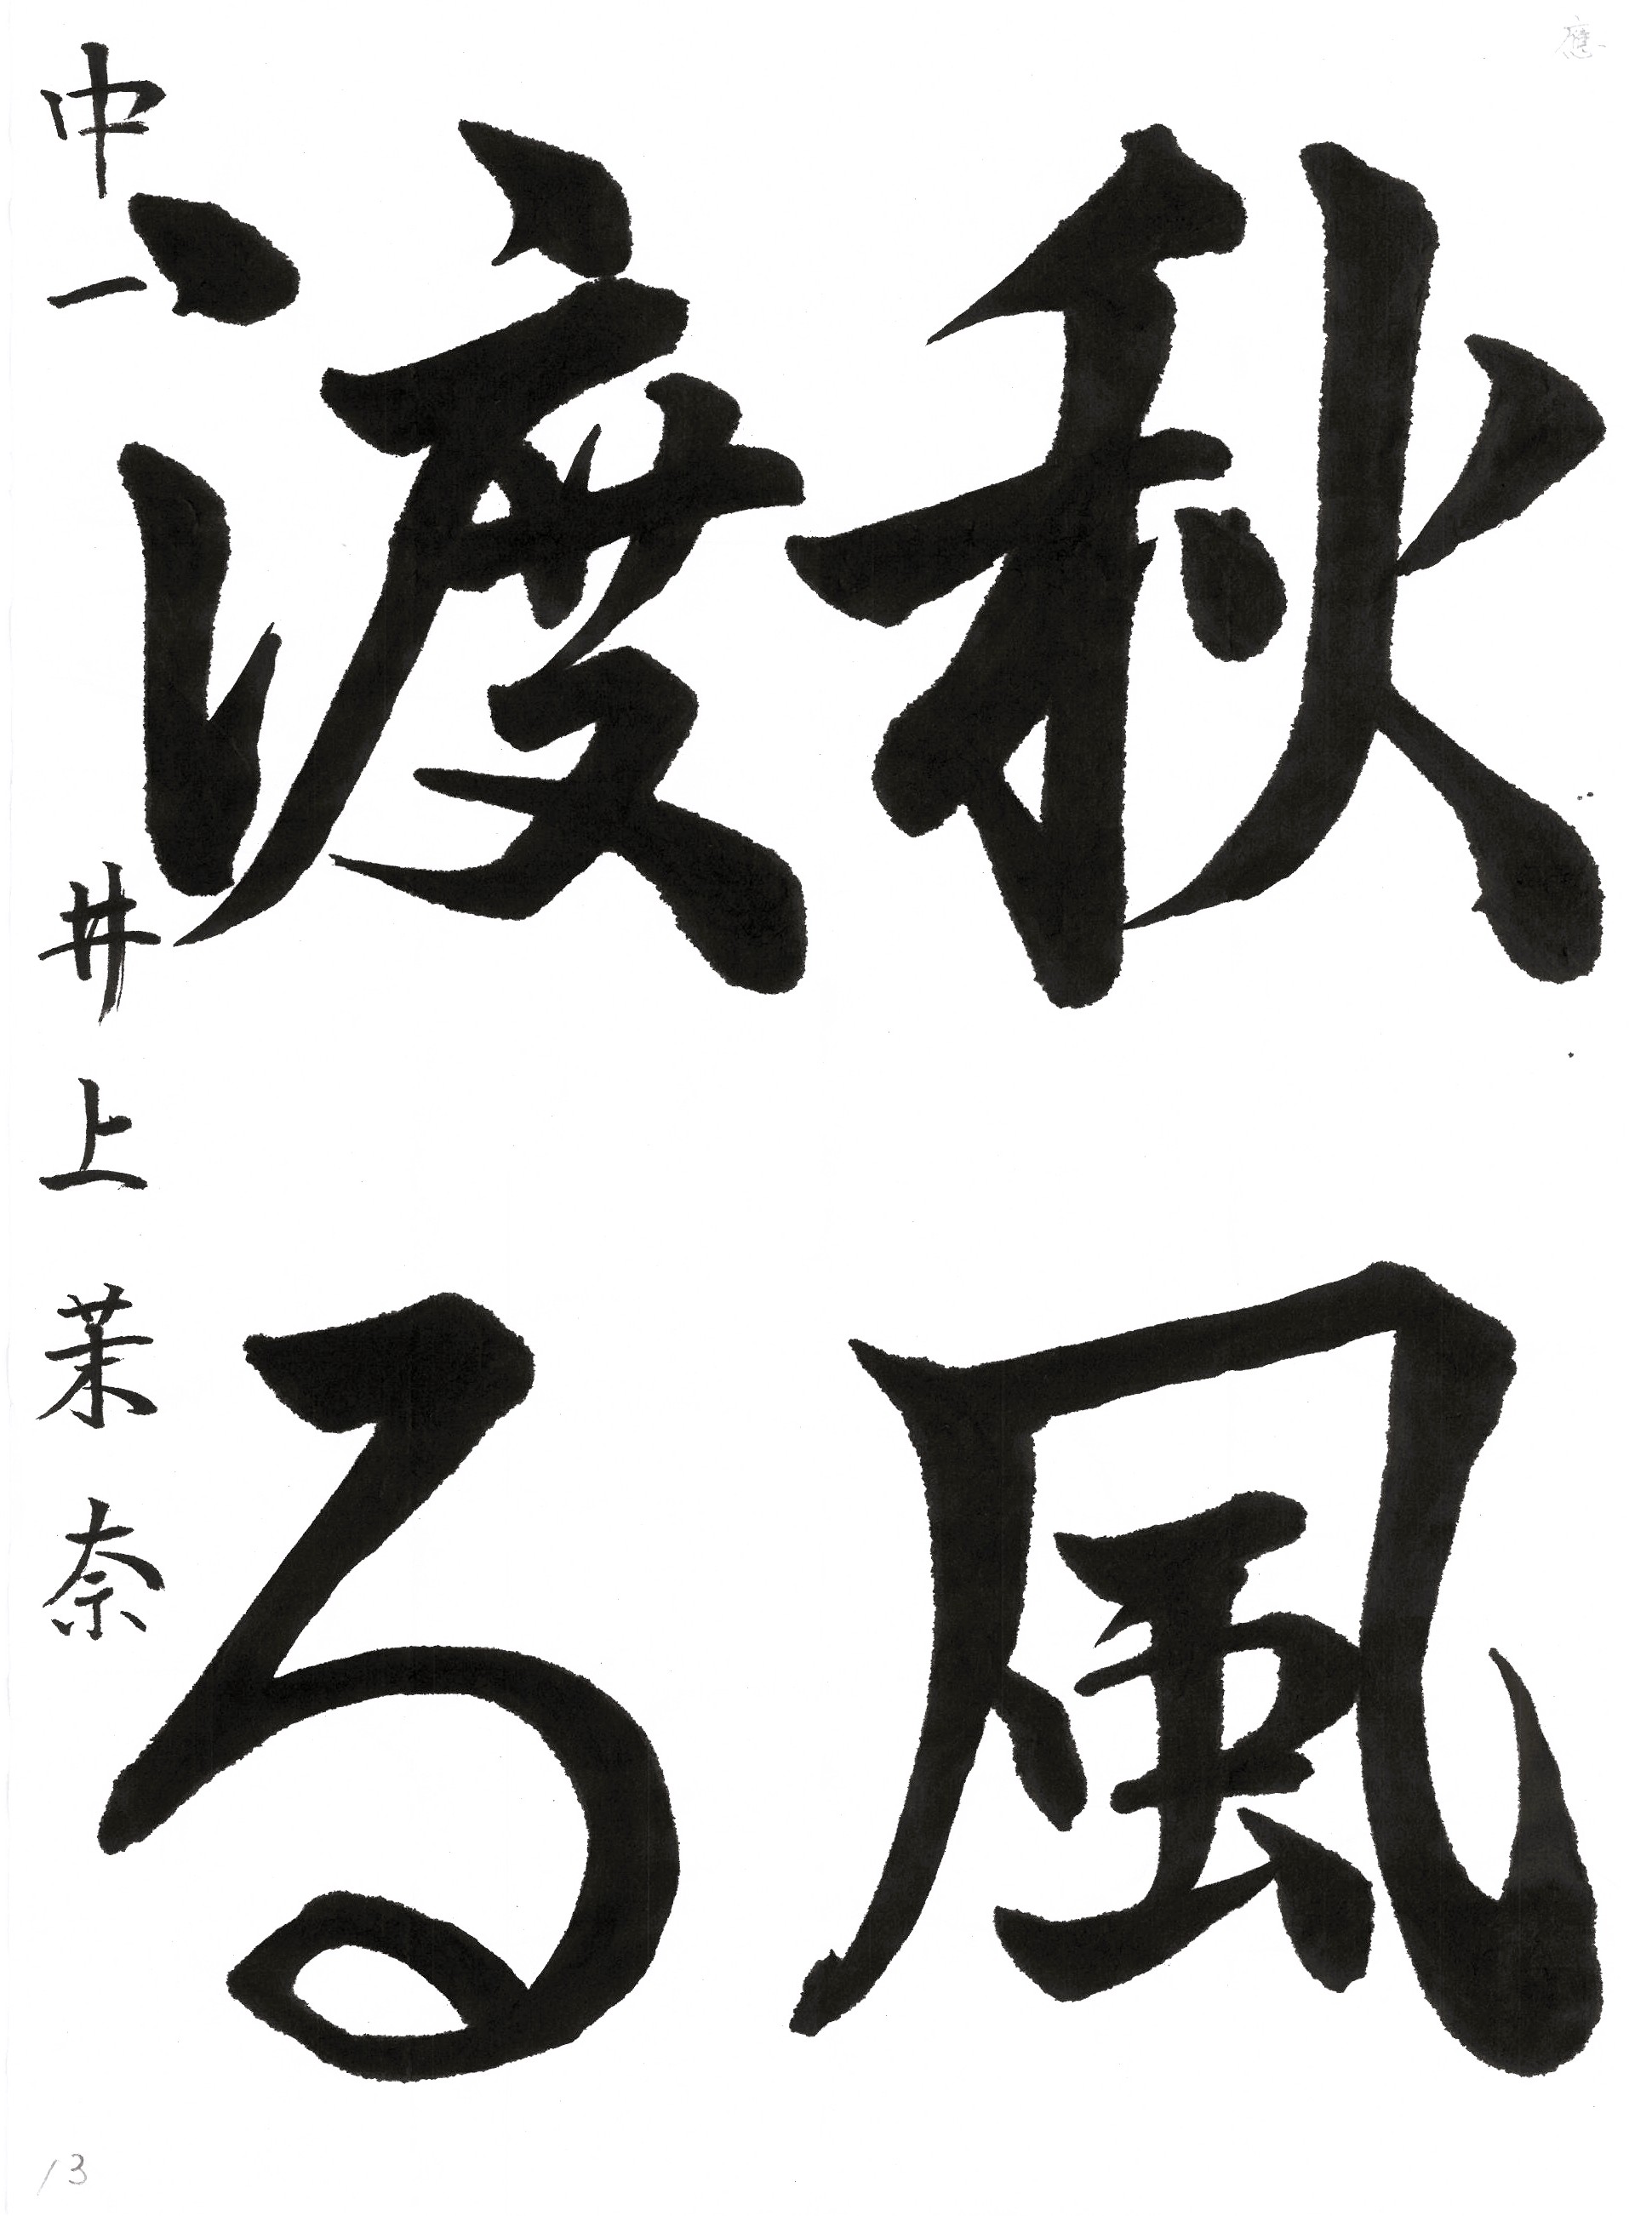 應
秋風
渡る
中一 井上茉奈
13